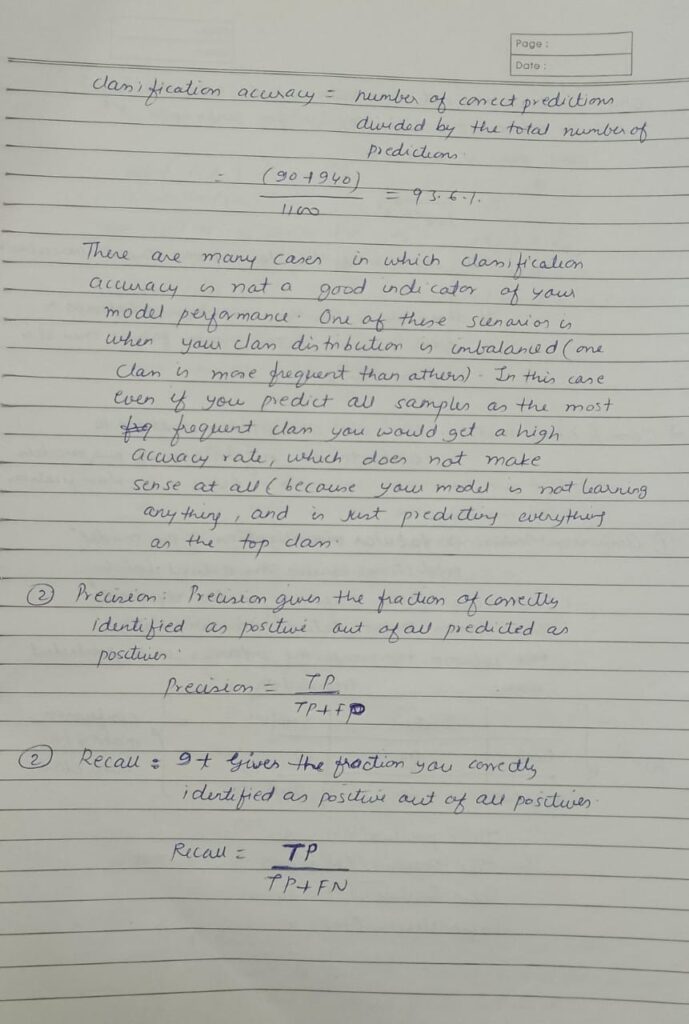 Page :
Date :
classification accuracy = number of correct predictions
divided by the total number of
predictions.
= (90+940)
1100 = 93.6%.
There are many cases in which classification
accuracy is not a good indicator of your
model performance. One of these scenarios is
when your class distribution is imbalanced (one
class is more frequent than others). In this case
even if you predict all samples as the most
frq frequent class you would get a high
accuracy rate, which does not make
sense at all (because your model is not learning
anything, and is just predicting everything
as the top class.
② Precision: Precision gives the fraction of correctly
identified as positive out of all predicted as
positives.
Precision = TP
TP+FP
② Recall : It Gives the fraction you correctly
identified as positive out of all positives.
Recall = TP
TP+FN